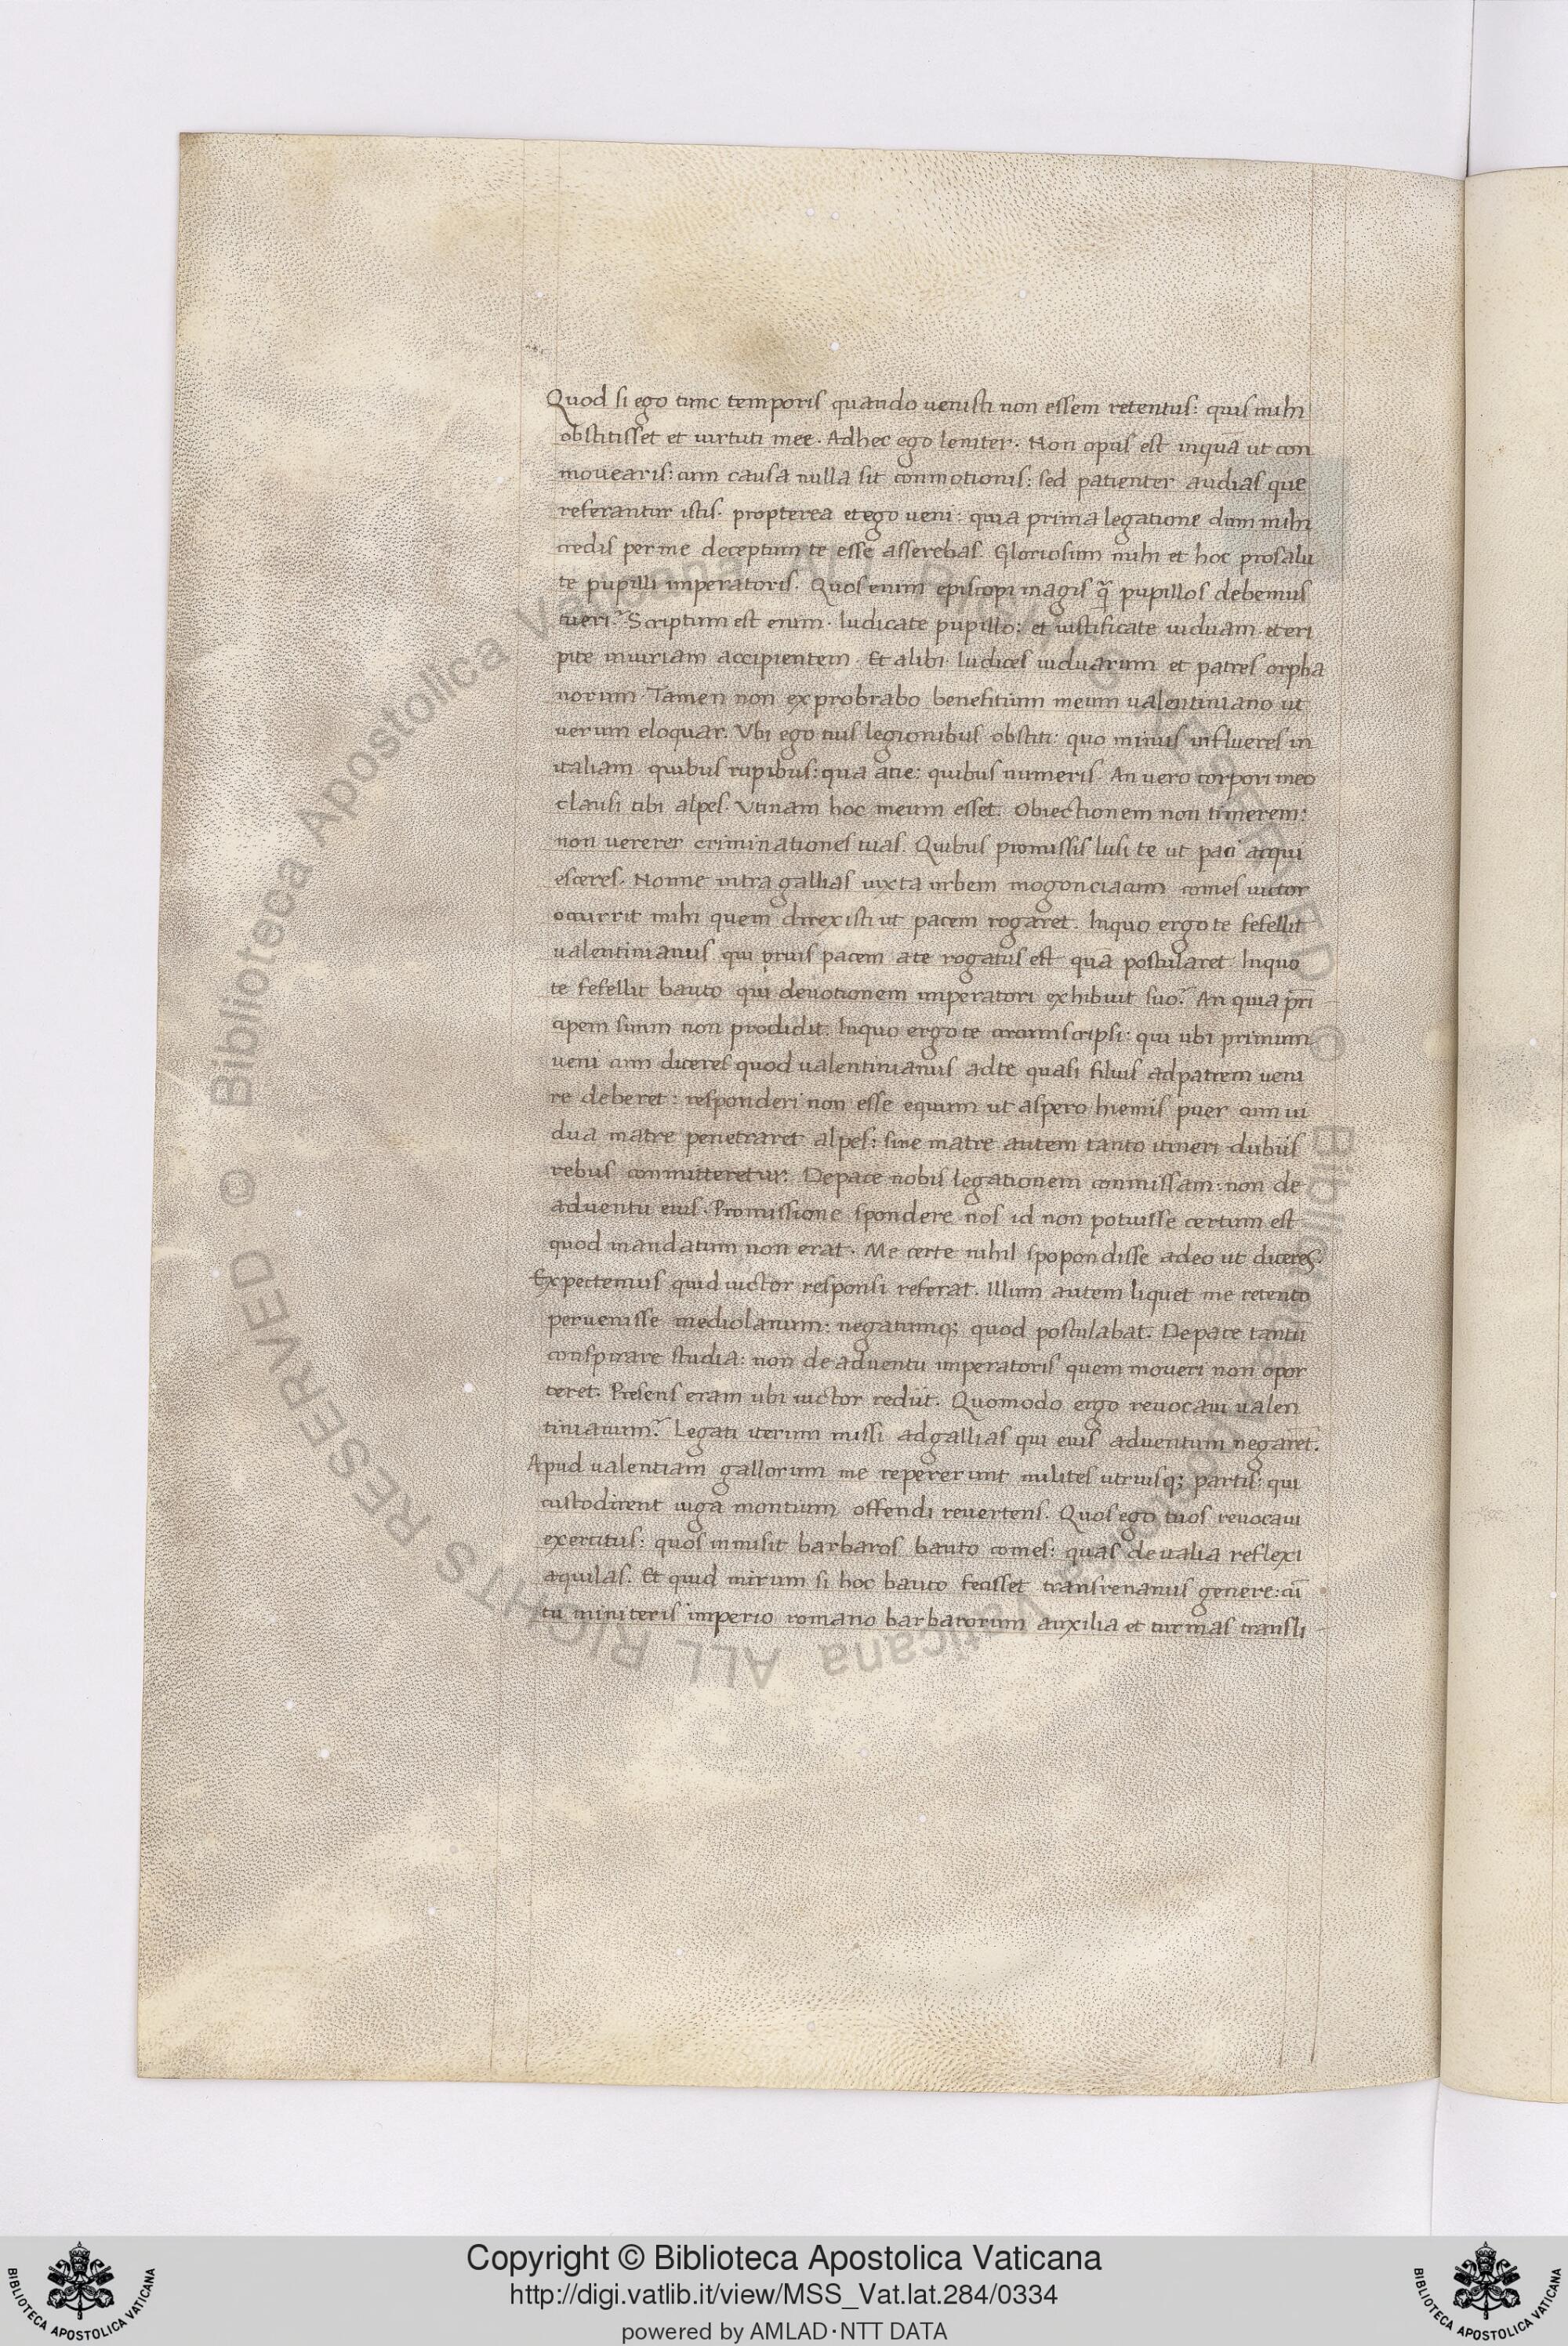 Quod si ego tunc temporis quando uenisti non essem retentus: quis mihi
obstitisset et uirtuti mee. Adhec ego leniter. Non opus est inquā ut con
mouearis: cum causa nulla sit conmotionis: sed patienter audias que
referantur istis. propterea et ego ueni: quia prima legatione dum mihi
credis per me deceptum te esse asserebas. Gloriosum mihi et hoc pro salu
te pupilli imperatoris. Quos enim episcopi magis q̄ pupillos debemus
tueri? Scriptum est enim. Iudicate pupillo: et iustificate uiduam et eri
pite iniuriam accipientem. Et alibi Iudices uiduarum et patres orpha
norum. Tamen non exprobrabo benefitium meum ualentiniano ut
uerum eloquar. Vbi ego tuis legionibus obstiti: quo minus influeres in
italiam quibus rupibus: qua atie: quibus numeris. An uero corpori meo
clausi tibi alpes. Vtinam hoc meum esset. Obiectionem non timerem:
non uererer criminationes tuas. Quibus promissis lusi te ut paci acqui
esceres. Nonne intra gallias iuxta urbem mogonciacum comes uictor
occurrit mihi quem direxisti ut pacem rogaret. Inquo ergo te fefellit
ualentinianus qui prius pacem ate rogatus est quā postularet Inquo
te fefellit bauto qui deuotionem imperatori exhibuit suo? An quia pri̅
cipem suum non prodidit. Inquo ergo te circumscripsi: qui ubi primum
ueni cum diceres quod ualentinianus adte quasi filius adpatrem ueni
re deberet: responderi non esse equum ut aspero hiemis puer cum ui
dua matre penetraret alpes: sine matre autem tanto itineri dubiis
rebus committeretur: Depace nobis legationem conmissam: non de
aduentu eius. Promissione spondere nos id non potuisse certum est
quod mandatum non erat. Me certe nihil spopondisse adeo ut diceres.
Expectemus quid uictor responsi referat. Illum autem liquet me retento
peruenisse mediolanum: negatumq; quod postulabat. Depace tantū
conspirare studia: non de aduentu imperatoris quem moueri non opor
teret. Presens eram ubi uictor rediit. Quomodo ergo reuocaui ualen
tinianum? Legati iterum missi adgallias qui eius aduentum negarēt.
Apud ualentiam gallorum me repererunt milites utriusq; partis: qui
custodirent iuga montium offendi reuertens. Quos ego tuos reuocaui
exercitus: quos inmisit barbaros bauto comes: quas de italia reflexi
aquilas. Et quid mirum si hoc bauto fecisset transrenanus genere: cū
tu miniteris imperio romano barbarorum auxilia et turmas transli
Copyright © Biblioteca Apostolica Vaticana
http://digi.vatlib.it/view/MSS_Vat.lat.284/0334
powered by AMLAD·NTT DATA
BIBLIOTECA APOSTOLICA VATICANA
BIBLIOTECA APOSTOLICA VATICANA
© Biblioteca Apostolica Vaticana ALL RIGHTS RESERVED © Biblioteca Apostolica Vaticana ALL RIGHTS RESERVED